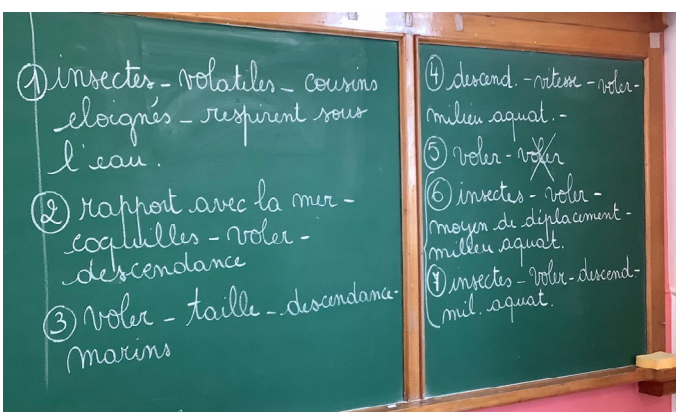 ① insectes - volatiles - cousins
eloignés - respirent sous
l'eau.
② rapport avec la mer -
coquilles - voler -
descendance
③ voler - taille - descendance -
marins
④ descend. - vitesse - voler -
milieu aquat. -
⑤ voler - voler
⑥ insectes - voler -
moyen de déplacement -
milieu aquat.
⑦ insectes - voler - descend -
mil. aquat.